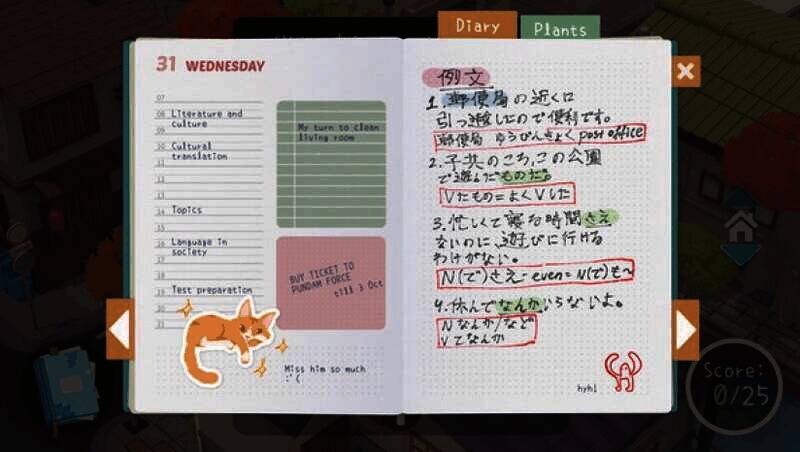 Diary
Plants
31 WEDNESDAY
07
08 Literature and
culture
09
10 Cultural
translation
11
12
13
14 Topics
15
16 Language in
society
17
18
19 Test preparation
20
21
My turn to clean
living room
BUY TICKET TO
PUNDAM FORCE
till 3 Oct
Miss him so much
:'(
例文
1. 郵便局の近くに
引っ越したので便利です。
郵便局 ゆうびんきょく post office
2. 子共のころ、この公園
で遊んだものだ。
Vたもの=よくVした
3. 忙しくて寝る時間さえ
ないのに、遊びに行ける
わけがない。
N(で)さえ-even=N(で)も~
4. 休んでなんかいらないよ。
Nなんか/など
Vてなんか
hyh!
Score:
0/25